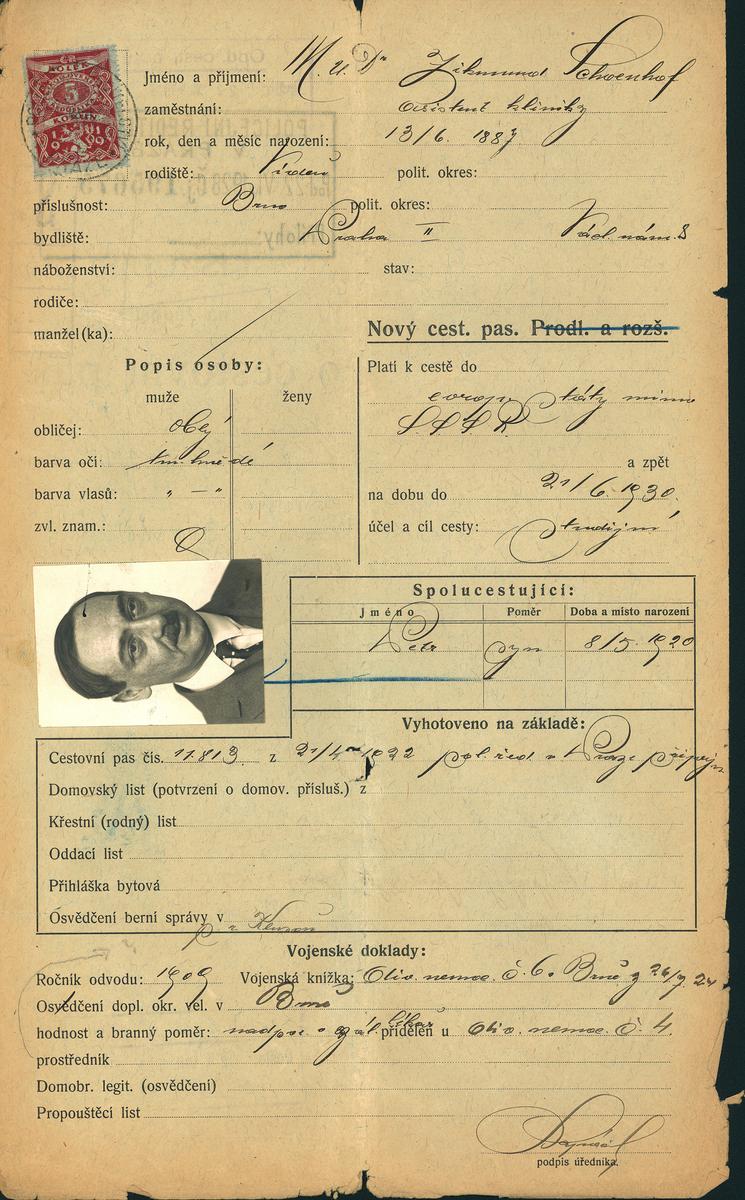 KOLEK
5
KORUN
1919
Jméno a příjmení: M. U. Dr Zikmund Schoenhof
zaměstnání: asistent kliniky
rok, den a měsíc narození: 13/6. 1887
rodiště: Vídeň polit. okres:
příslušnost: Brno polit. okres:
bydliště: Praha II Václ. nám. 8
náboženství: stav:
rodiče:
manžel(ka):
Nový cest. pas. Prodl. a rozš.
Popis osoby:
muže ženy
obličej: oblý
barva očí: tm. hnědé
barva vlasů: " — "
zvl. znam.:
Platí k cestě do
evrop. státy mimo
SSSR
a zpět
na dobu do 21/6. 1930.
účel a cíl cesty: studijní
Spolucestující:
Jméno Poměr Doba a místo narození
Petr syn 8/5. 1920
Vyhotoveno na základě:
Cestovní pas čís. 11.813 z 21/4 1922 pol. řed. v Praze
Domovský list (potvrzení o domov. přísluš.) z
Křestní (rodný) list
Oddací list
Přihláška bytová
Osvědčení berní správy v
Vojenské doklady:
Ročník odvodu: 1909 Vojenská knížka: Div. nemoc. č. 6. Brně z 26/7. 24
Osvědčení dopl. okr. vel. v Brně
hodnost a branný poměr: nadpor. v zál. lékař přidělen u Div. nemoc. č. 4.
prostředník
Domobr. legit. (osvědčení)
Propouštěcí list
podpis úředníka.